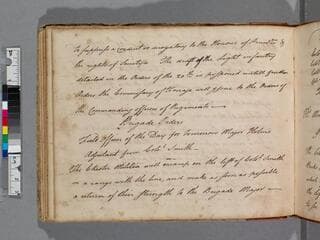 To suppress a conduct so derogatory to the Honour of
the rights of Society. The draft of the Light infantry
detailed in the Orders of the 20th is postponed untill further
Orders the Commissary of Forrage will come to the Orders of
the Commanding officers of Regiments
Brigade Orders
Field Officer of the Day for Tomorrow Major Holms
Adjutant from Colo. Smith
The Chester Militia will encamp on the left of Colo. Smith
in a range with the line, and make as soon as possible
a return of their strength to the Brigade Major